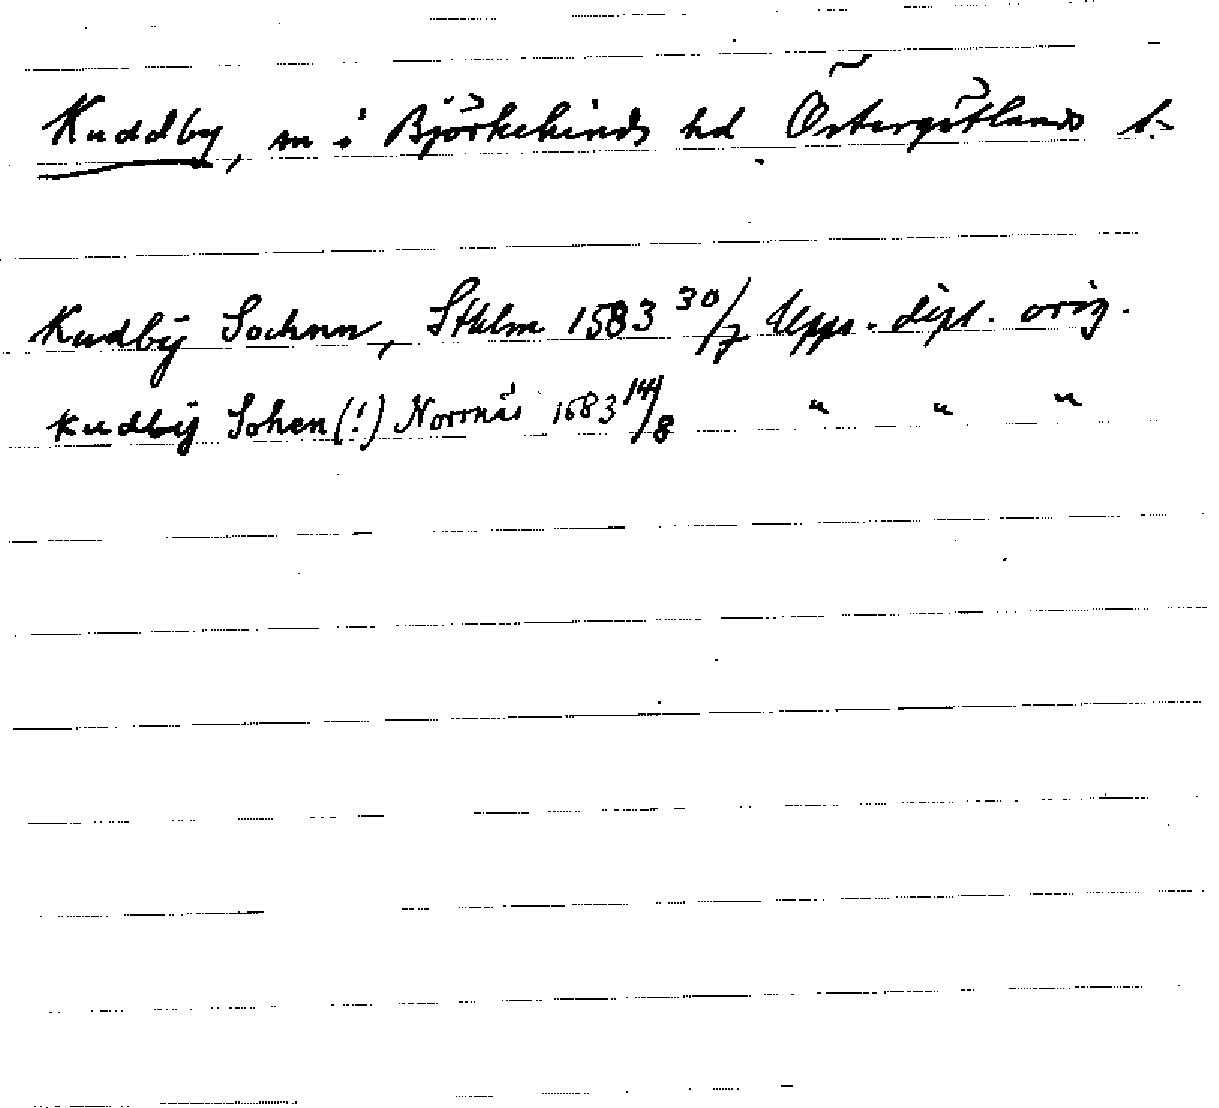 Kuddby, sn i Björkekinds hd Östergötlands l.
Kudbÿ Sochnn, Sthlm 1583 30/7 Upps. dipl. orig.
Kudbÿ Sohen (!) Norrnäs 1583 14/8 " " "